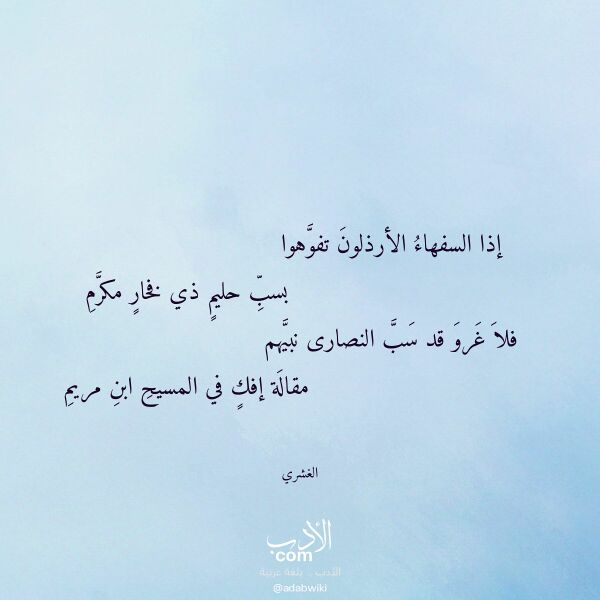 إذا السفهاءُ الأرذلونَ تفوَّهوا
بسبِّ حليمٍ ذي فخارٍ مكرَّمِ
فلاَ غَروَ قد سَبَّ النصارى نبيَّهم
مقالَة إفكٍ في المسيحِ ابنِ مريمِ
الغشري
الأدب
com
الأدب .. بلغة عربية
@adabwiki